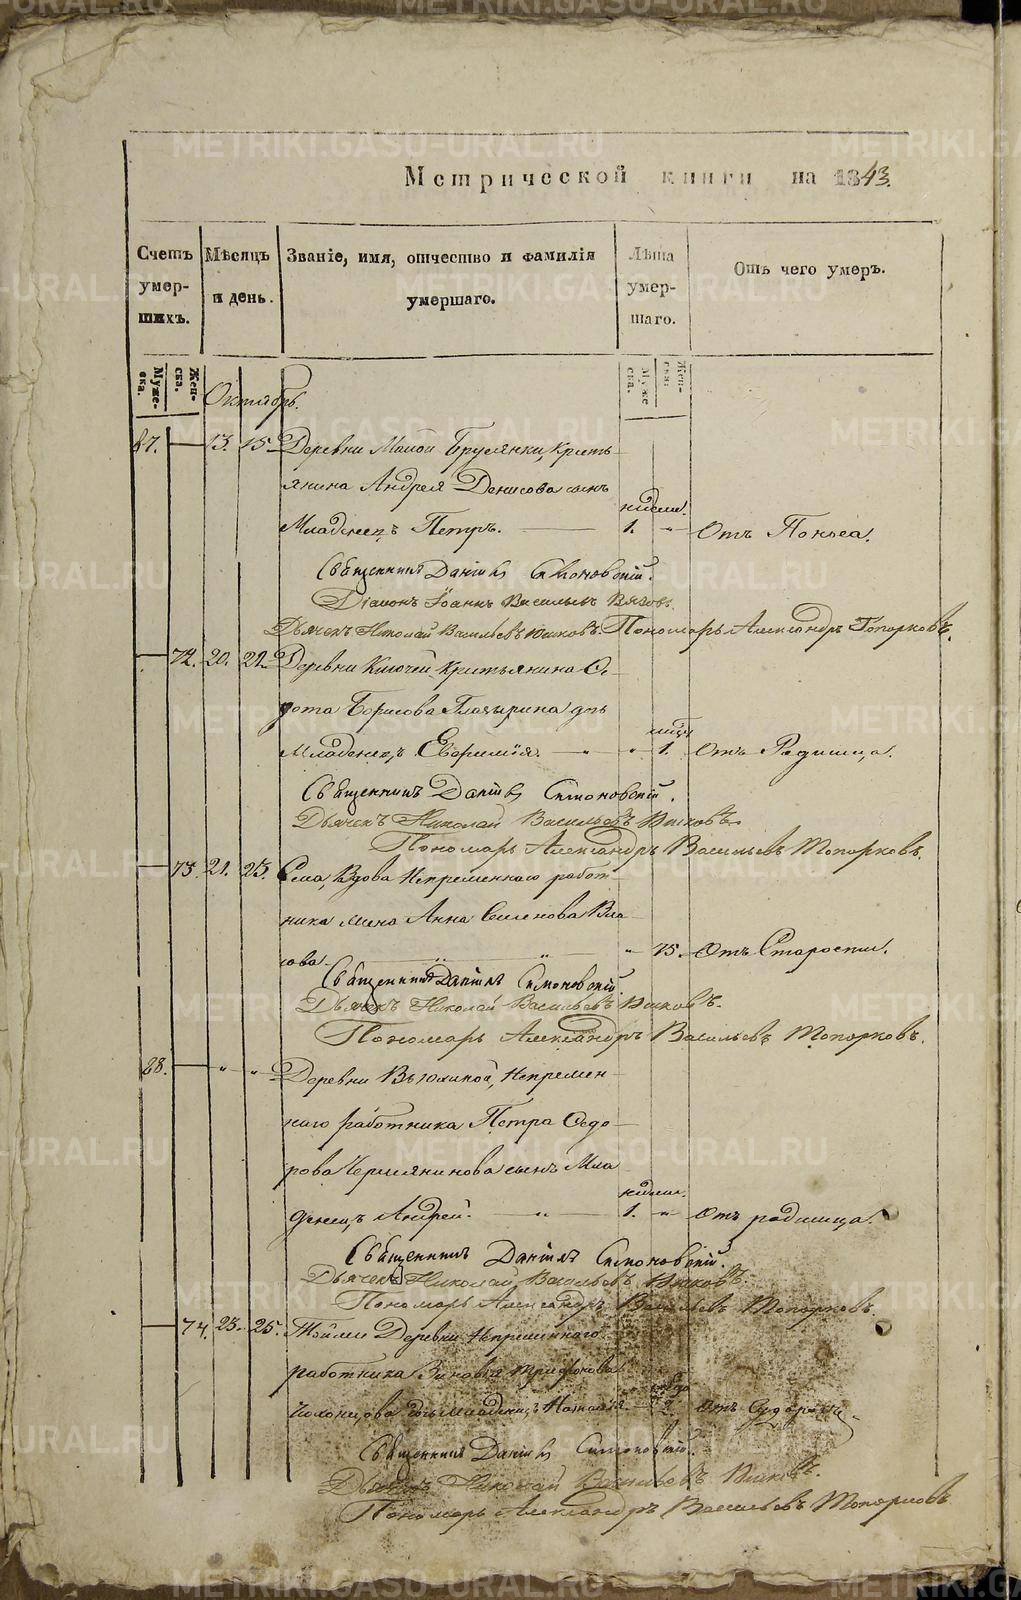 Метрической книги на 1843.
Счетъ умер-шихъ.
Мѣсяцъ и день.
Званіе, имя, отчество и фамилія умершаго.
Лѣта умер-шаго.
Отъ чего умеръ.
Муже-ска. Жен-ска.
Муже-ска. Жен-ска.
Октябрь.
87. 13. 15. Деревни Малой Брусянки, Кресть-
янина Андрея Денисова сынъ
недели.
Младенецъ Петръ. 1. " Отъ Поноса.
Священникъ Даніилъ Симоновскій.
Діаконъ Іоаннъ Васильевъ
Дьячекъ Николай Васильевъ Пономарь Александръ Топорковъ.
72. 20. 22. Деревни Ключей Крестьянина Ѳе-
дота Борисова дчь
Младенецъ Евфимія. " " 1. Отъ Родимца.
Священникъ Даніилъ Симоновскій.
Дьячекъ Николай Васильевъ
Пономарь Александръ Васильевъ Топорковъ.
73. 21. 23. Села, Вдова Непременнаго работ-
ника жена Анна Семенова Вла-
сова. " " " 75. Отъ Старости.
Священникъ Даніилъ Симоновскій.
Дьячекъ Николай Васильевъ
Пономарь Александръ Васильевъ Топорковъ.
88. " " Деревни Непремен-
наго работника Петра Ѳедо-
рова Чермянинова сынъ Мла-
недели.
денецъ Андрей. " 1. " Отъ родимца.
Священникъ Даніилъ Симоновскій.
Дьячекъ Николай Васильевъ
Пономарь Александръ Васильевъ Топорковъ.
74. 23. 25. Тойже Деревни Непременнаго
работника Зиновья Трифонова
дочь младенецъ Наталія 2. Отъ
Священникъ Даніилъ Симоновскій.
Дьячекъ Николай Васильевъ
Пономарь Александръ Васильевъ Топорковъ
METRIKI.GASO-URAL.RU